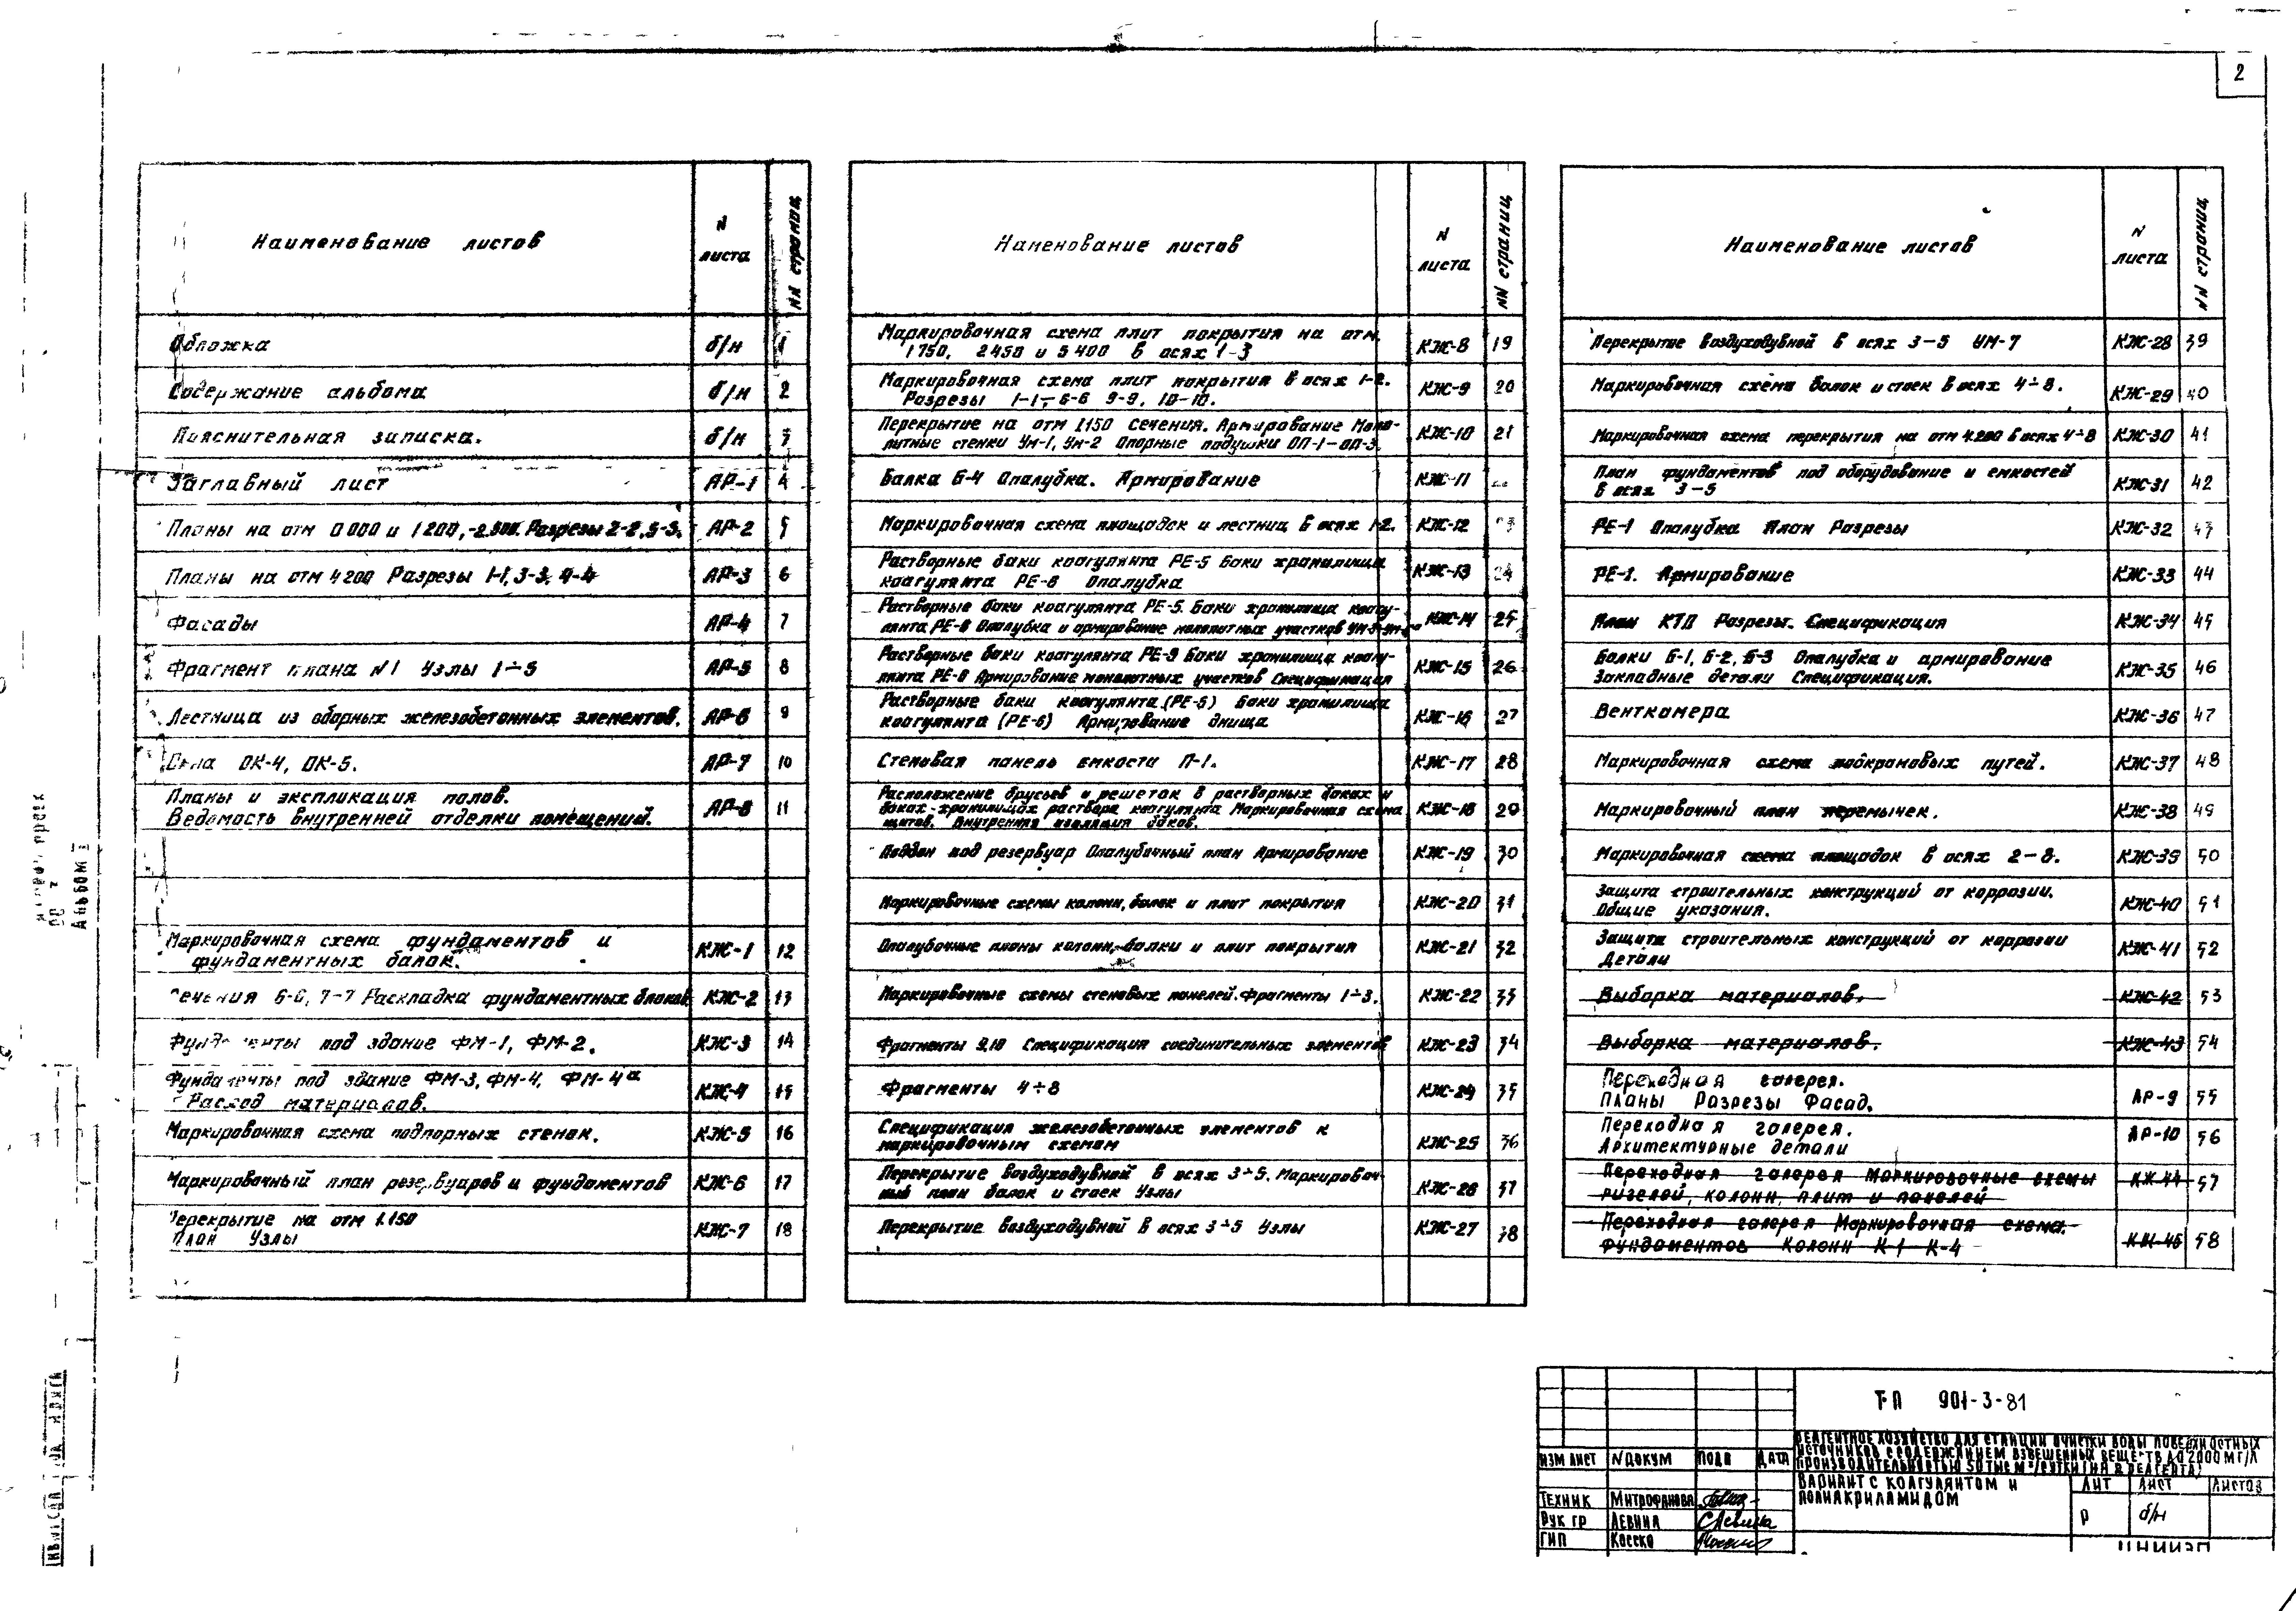 2
Наименование листов
N листа
NN страниц
Обложка б/н 1
Содержание альбома б/н 2
Пояснительная записка. б/н 3
Заглавный лист АР-1 4
Планы на отм 0000 и 1200, Разрезы 2-2, АР-2 5
Планы на отм 4200 Разрезы 1-1, 3-3, 4-4 АР-3 6
Фасады АР-4 7
Фрагмент плана N1 Узлы 1÷5 АР-5 8
Лестница из сборных железобетонных элементов. АР-6 9
Окна ОК-4, ОК-5. АР-7 10
Планы и экспликация полов.
Ведомость внутренней отделки помещений. АР-8 11
Маркировочная схема фундаментов и
фундаментных балок. КЖ-1 12
Сечения 6-6, 7-7 Раскладка фундаментных блоков КЖ-2 13
Фундаменты под здание ФМ-1, ФМ-2. КЖ-3 14
Фундаменты под здание ФМ-3, ФМ-4, ФМ-4а
Расход материалов. КЖ-4 15
Маркировочная схема подпорных стенок. КЖ-5 16
Маркировочный план резервуаров и фундаментов КЖ-6 17
Перекрытие на отм 1.150
План Узлы КЖ-7 18
Наменование листов
N листа
NN страниц
Маркировочная схема плит покрытия на отм.
1750, 2450 и 5400 в осях 1-3 КЖ-8 19
Маркировочная схема плит покрытия в осях 1-2.
Разрезы 1-1÷6-6 9-9, 10-10. КЖ-9 20
Перекрытие на отм 1.150 Сечения. Армирование Моно-
литные стенки Ум-1, Ум-2 Опорные подушки ОП-1-ОП-3. КЖ-10 21
Балка Б-4 Опалубка. Армирование КЖ-11
Маркировочная схема площадок и лестниц в осях 1-2. КЖ-12
Растворные баки коагулянта РЕ-5 Баки хранилища
коагулянта РЕ-6 Опалубка КЖ-13 24
Растворные баки коагулянта РЕ-5. Баки хранилища коагу-
лянта РЕ-6 Опалубка и армирование монолитных участков КЖ-14 25
Растворные баки коагулянта РЕ-5 Баки хранилища коагу-
лянта РЕ-6 Армирование монолитных участков Спецификация КЖ-15 26
Растворные баки коагулянта (РЕ-5) Баки хранилища
коагулянта (РЕ-6) Армирование днища КЖ-16 27
Стеновая панель емкости П-1. КЖ-17 28
Расположение брусьев и решеток в растворных баках и
баках-хранилищах раствора коагулянта Маркировочная схема
щитов. Внутренняя изоляция баков. КЖ-18 29
Поддон под резервуар Опалубочный план Армирование КЖ-19 30
Маркировочные схемы колонн, балок и плит покрытия КЖ-20 31
Опалубочные планы колонн, балки и плит покрытия КЖ-21 32
Маркировочные схемы стеновых панелей. Фрагменты 1÷3. КЖ-22 33
Фрагменты 9,10 Спецификация соединительных элементов КЖ-23 34
Фрагменты 4÷8 КЖ-24 35
Спецификация железобетонных элементов к
маркировочным схемам КЖ-25 36
Перекрытие воздуходувной в осях 3÷5. Маркировоч-
ный план балок и стоек Узлы КЖ-26 37
Перекрытие воздуходувной в осях 3÷5 Узлы КЖ-27 38
Наименование листов
N листа
NN страниц
Перекрытие воздуходувной в осях 3-5 УМ-7 КЖ-28 39
Маркировочная схема балок и стоек в осях 4÷8. КЖ-29 40
Маркировочная схема перекрытия на отм 4.200 в осях 4÷8 КЖ-30 41
План фундаментов под оборудование и емкостей
в осях 3-5 КЖ-31 42
РЕ-1 Опалубка План Разрезы КЖ-32 43
РЕ-1. Армирование КЖ-33 44
План КТП Разрезы. Спецификация КЖ-34 45
Балки Б-1, Б-2, Б-3 Опалубка и армирование
Закладные детали Спецификация. КЖ-35 46
Венткамера КЖ-36 47
Маркировочная схема подкрановых путей. КЖ-37 48
Маркировочный план перемычек. КЖ-38 49
Маркировочная схема площадок в осях 2-8. КЖ-39 50
Защита строительных конструкций от коррозии.
Общие указания. КЖ-40 51
Защита строительных конструкций от коррозии
Детали КЖ-41 52
Выборка материалов. КЖ-42 53
Выборка материалов. КЖ-43 54
Переходная галерея.
Планы Разрезы Фасад. АР-9 55
Переходная галерея.
Архитектурные детали АР-10 56
Переходная галерея Маркировочные схемы
ригелей, колонн, плит и панелей КЖ-44 57
Переходная галерея Маркировочная схема.
фундаментов Колонн К-1 К-4 КЖ-45 58
Альбом I
ТП 901-3-81
Реагентное хозяйство для станции очистки воды поверхностных
источников с содержанием взвешенных веществ до 2000 мг/л
производительностью 50 тыс м³/сутки (на 2 реагента)
Вариант с коагулянтом и
полиакриламидом
Изм лист N докум Подп Дата
Лит Лист Листов
Р б/н
Техник Митрофанова
Рук гр Левина
ГИП Косско
ЦНИИЭП